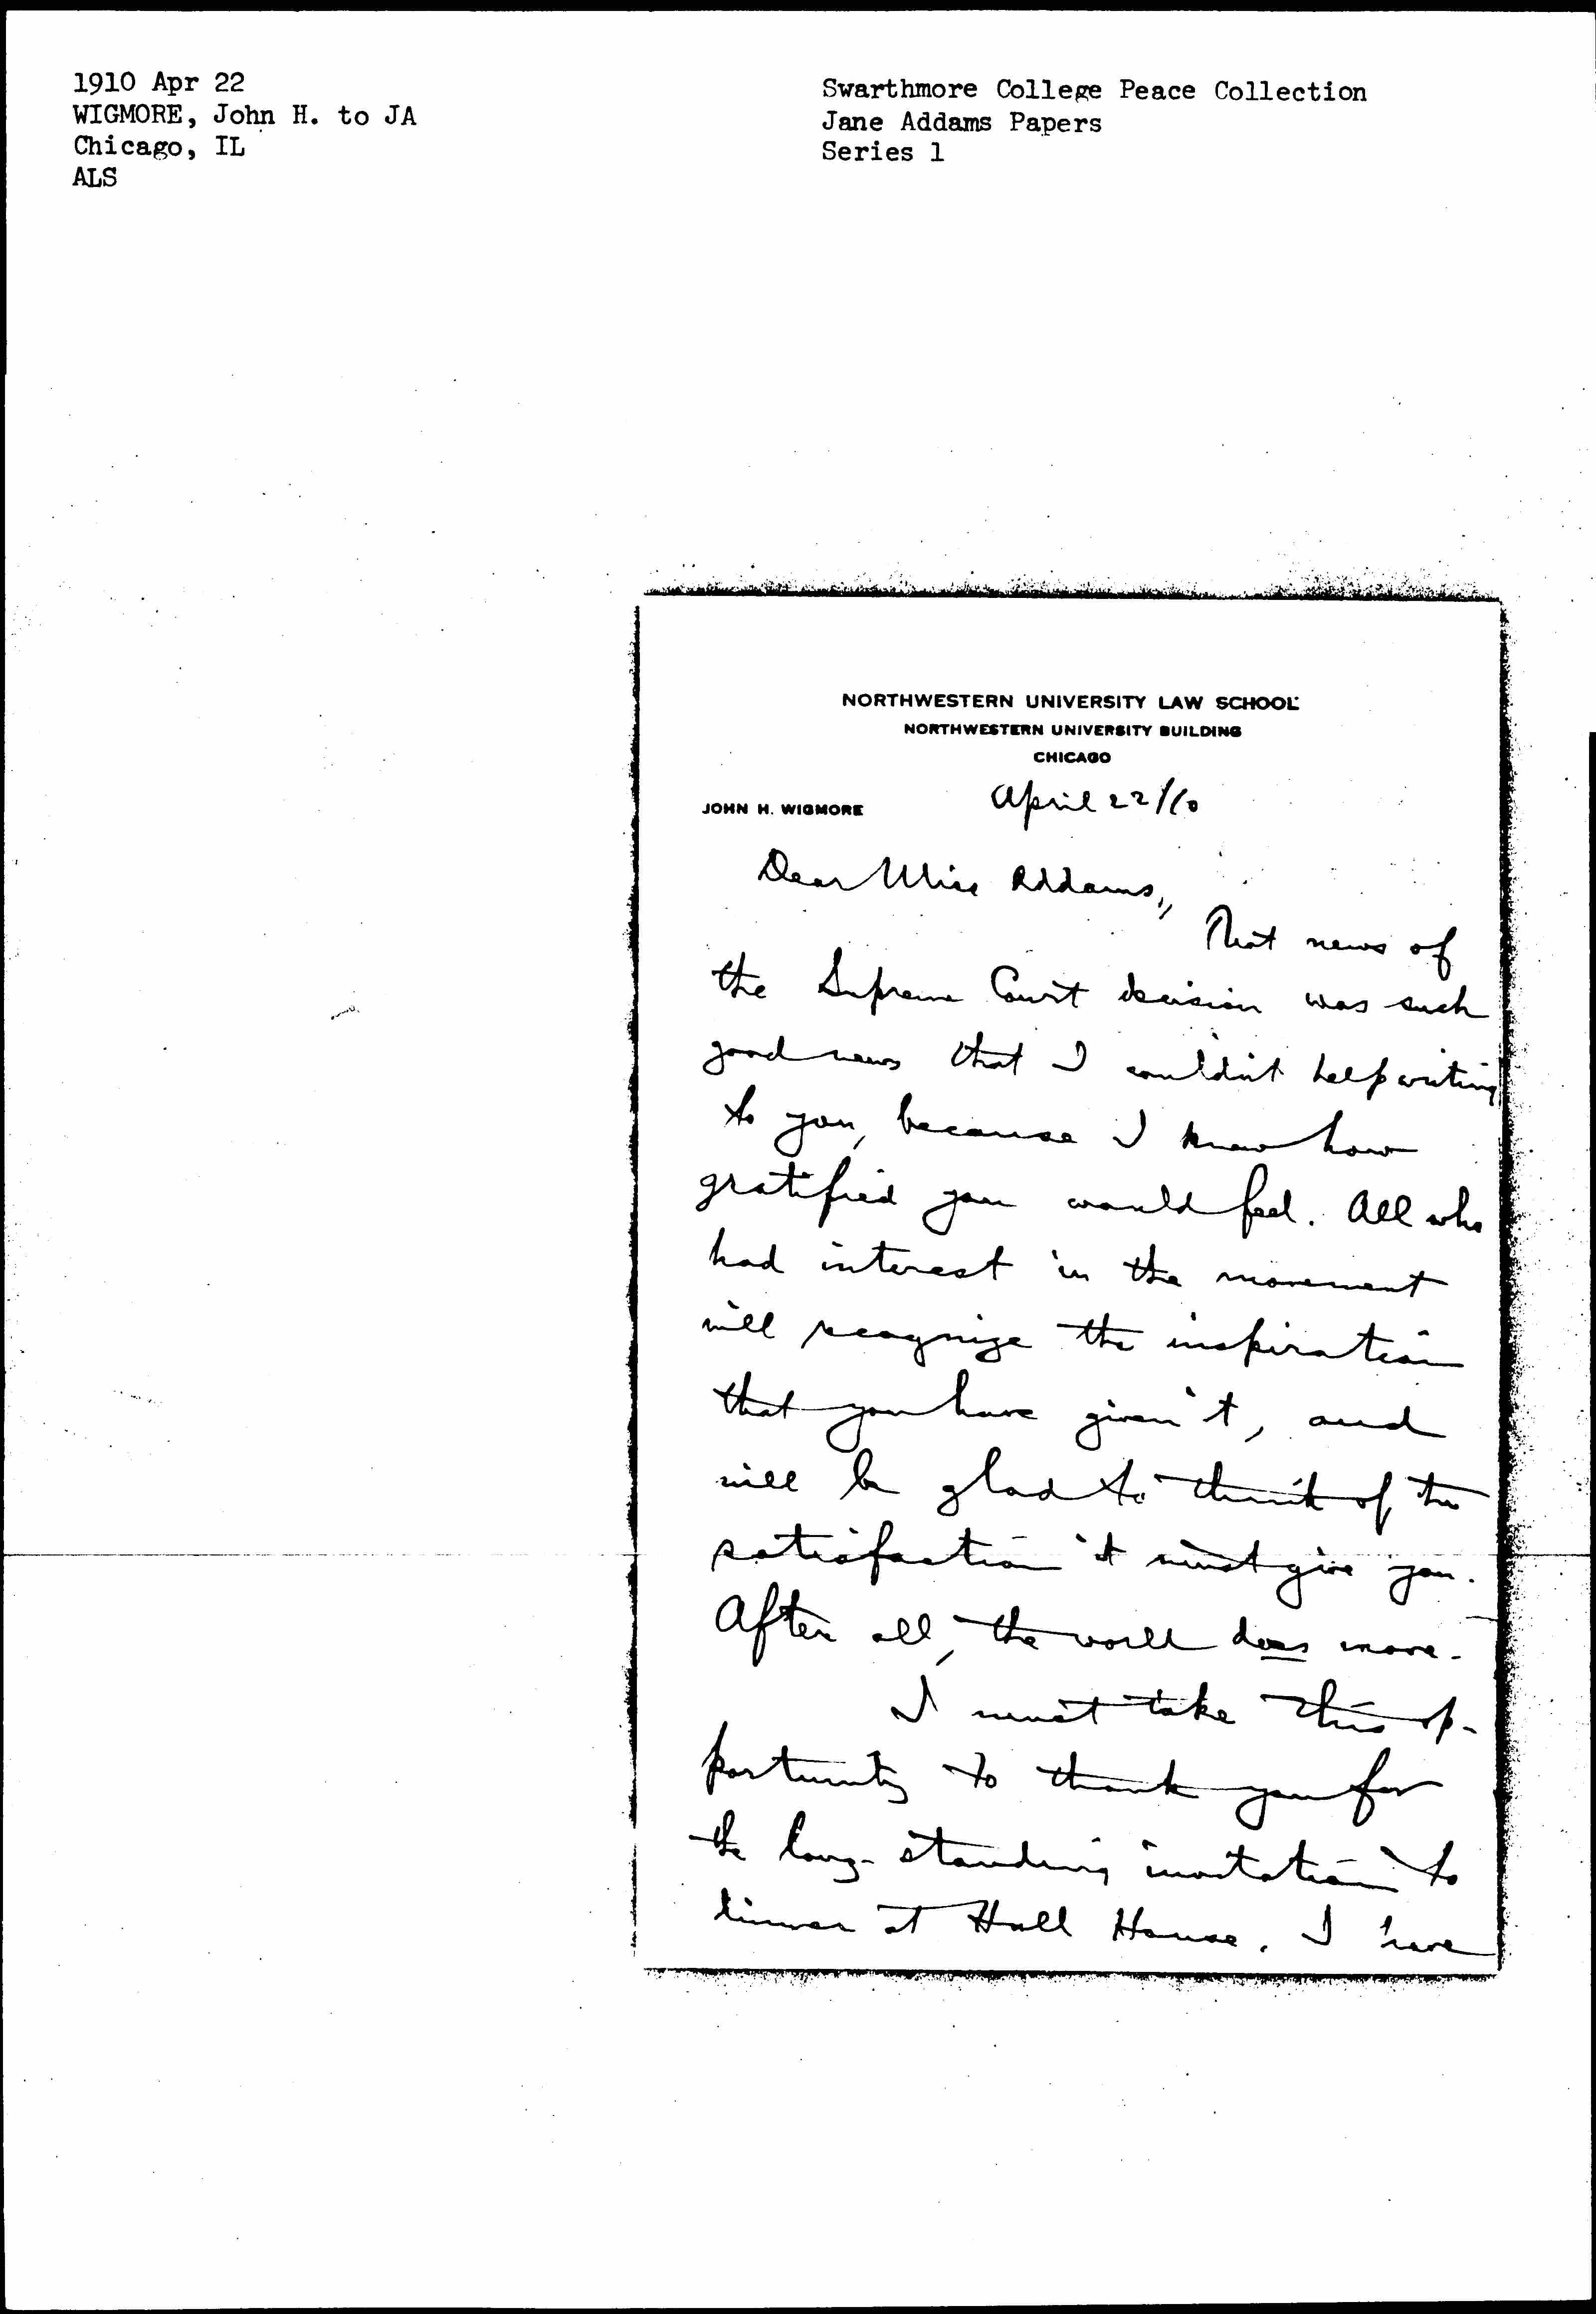 1910 Apr 22
WIGMORE, John H. to JA
Chicago, IL
ALS
Swarthmore College Peace Collection
Jane Addams Papers
Series 1
NORTHWESTERN UNIVERSITY LAW SCHOOL
NORTHWESTERN UNIVERSITY BUILDING
CHICAGO
JOHN H. WIGMORE
April 22/10
Dear Miss Addams,
That news of
the Supreme Court decision was such
good news that I couldn't help writing
to you, because I knew how
gratified you would feel. All who
had interest in the movement
will recognize the inspiration
that you have given it, and
will be glad to think of the
satisfaction it must give you.
After all, the world does move.
I must take this op-
portunity to thank you for
the long-standing invitation to
dinner at Hull House. I have